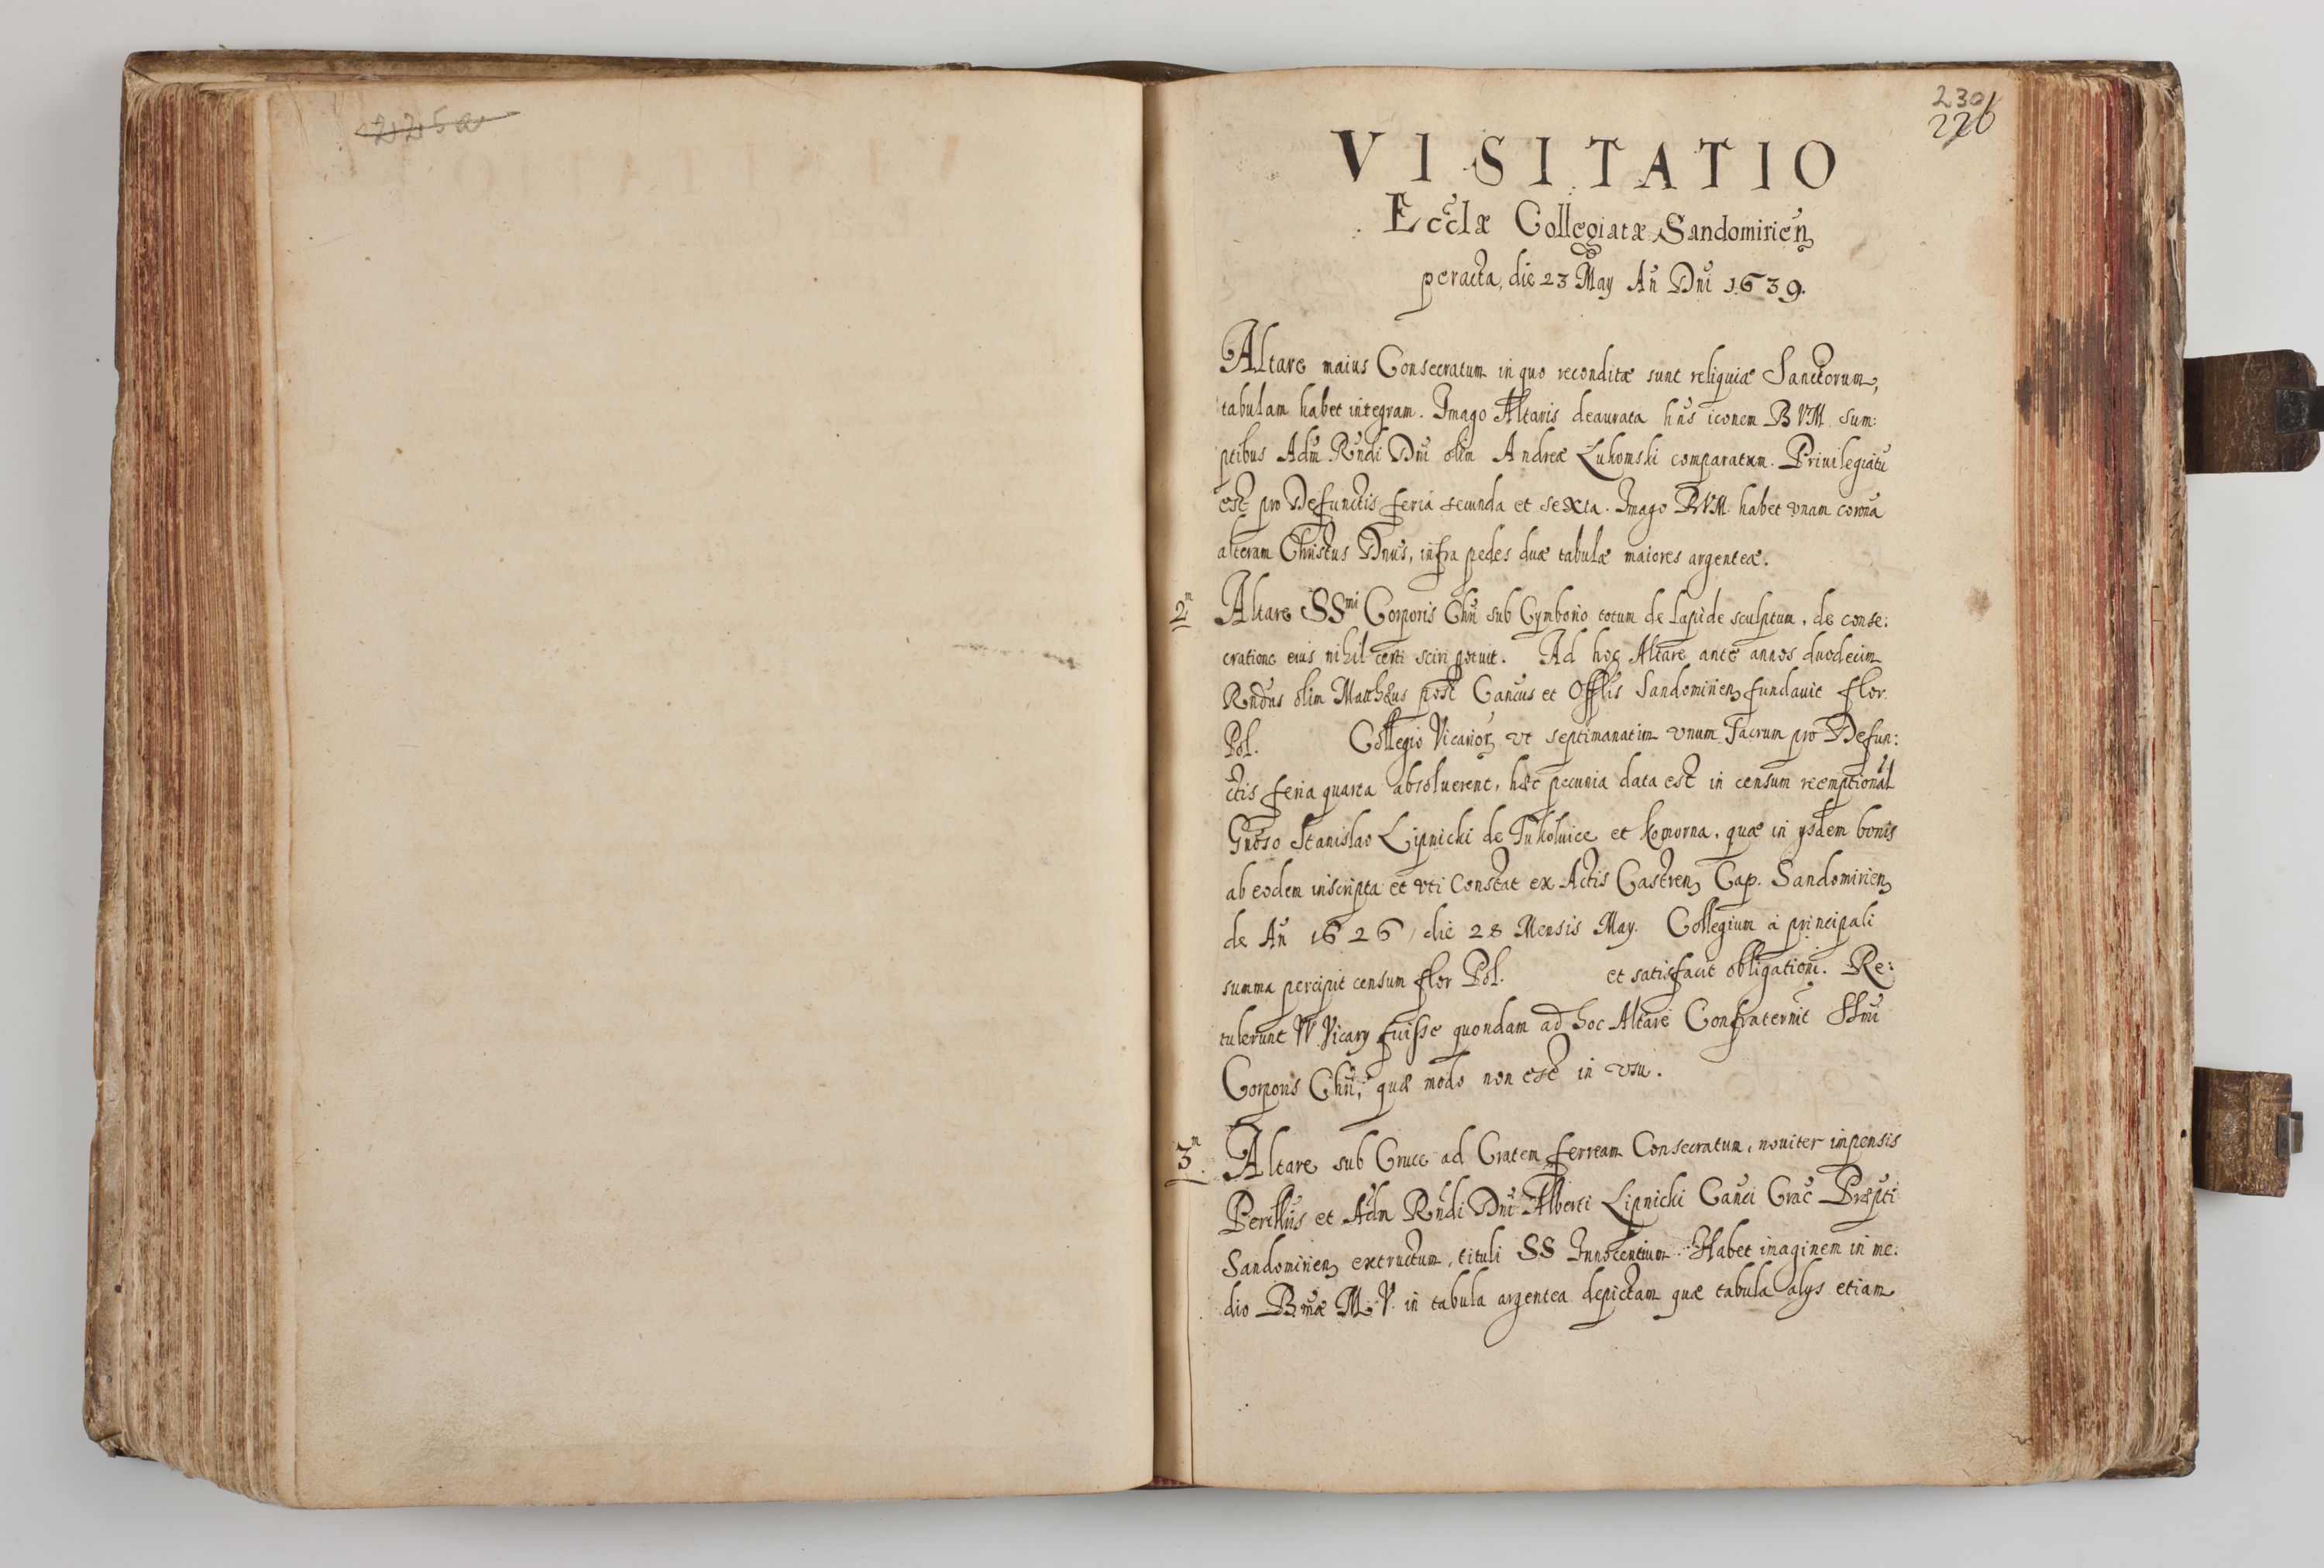 225a
230
226
VISITATIO
Eccłæ Collegiatæ Sandomirień
peracta, die 23 May Añ Dñi 1639.
Altare maius Consecratum in quo reconditæ sunt reliquiæ Sanctorum,
tabulam habet integram. Imago Altaris deaurata hñs iconem BVM sum:
ptibus Adm̃ Rñdi Dñi olim Andreæ Łukomski comparatum. Priuilegiatũ
est pro Defunctis feria secunda et sexta. Imago BVM habet vnam coronã
alteram Christus Dñus, infra pedes duæ tabulæ maiores argenteæ.
2m Altare SSmi Corporis Chñ sub Cymborio totum de lapide sculptum, de conse:
cratione eius nihil certi sciri potuit. Ad hoc Altare ante annos duodecim
Rñdus olim Matthæus Cañcus et Offlis Sandomirieñ fundauit flor.
Pol. Collegio Vicarior, vt septimanatim vnum Sacrum pro Defun:
ctis feria quarta absoluerent, hæc pecunia data est in censum reemptional
Gñoso Stanislao Lipnicki de et komorna, quæ in ysdem bonis
ab eodem inscripta et vti Constat ex Actis Castreñ Cap. Sandomirieñ
de Añ 1626, die 28 Mensis May. Collegium à principali
summa percipit censum flor Pol. et satisfacit obligationi. Re:
tulerunt VV. Vicary fuisse quondam ad hoc Altare Confraternit̃ SSmi
Corporis Chñ, quæ modo non est in vsu.
3m. Altare sub Cruce ad Cratem ferream Consecratum, nouiter inpensis
Perillus et Adm Rñdi Dñi Alberti Lipnicki Cañci Crac̃ Præpti
Sandomirieñ extructum, tituli SS Innocentium. Habet imaginem in me:
dio Bmæ M. V. in tabula argentea depictam quæ tabula alys etiam